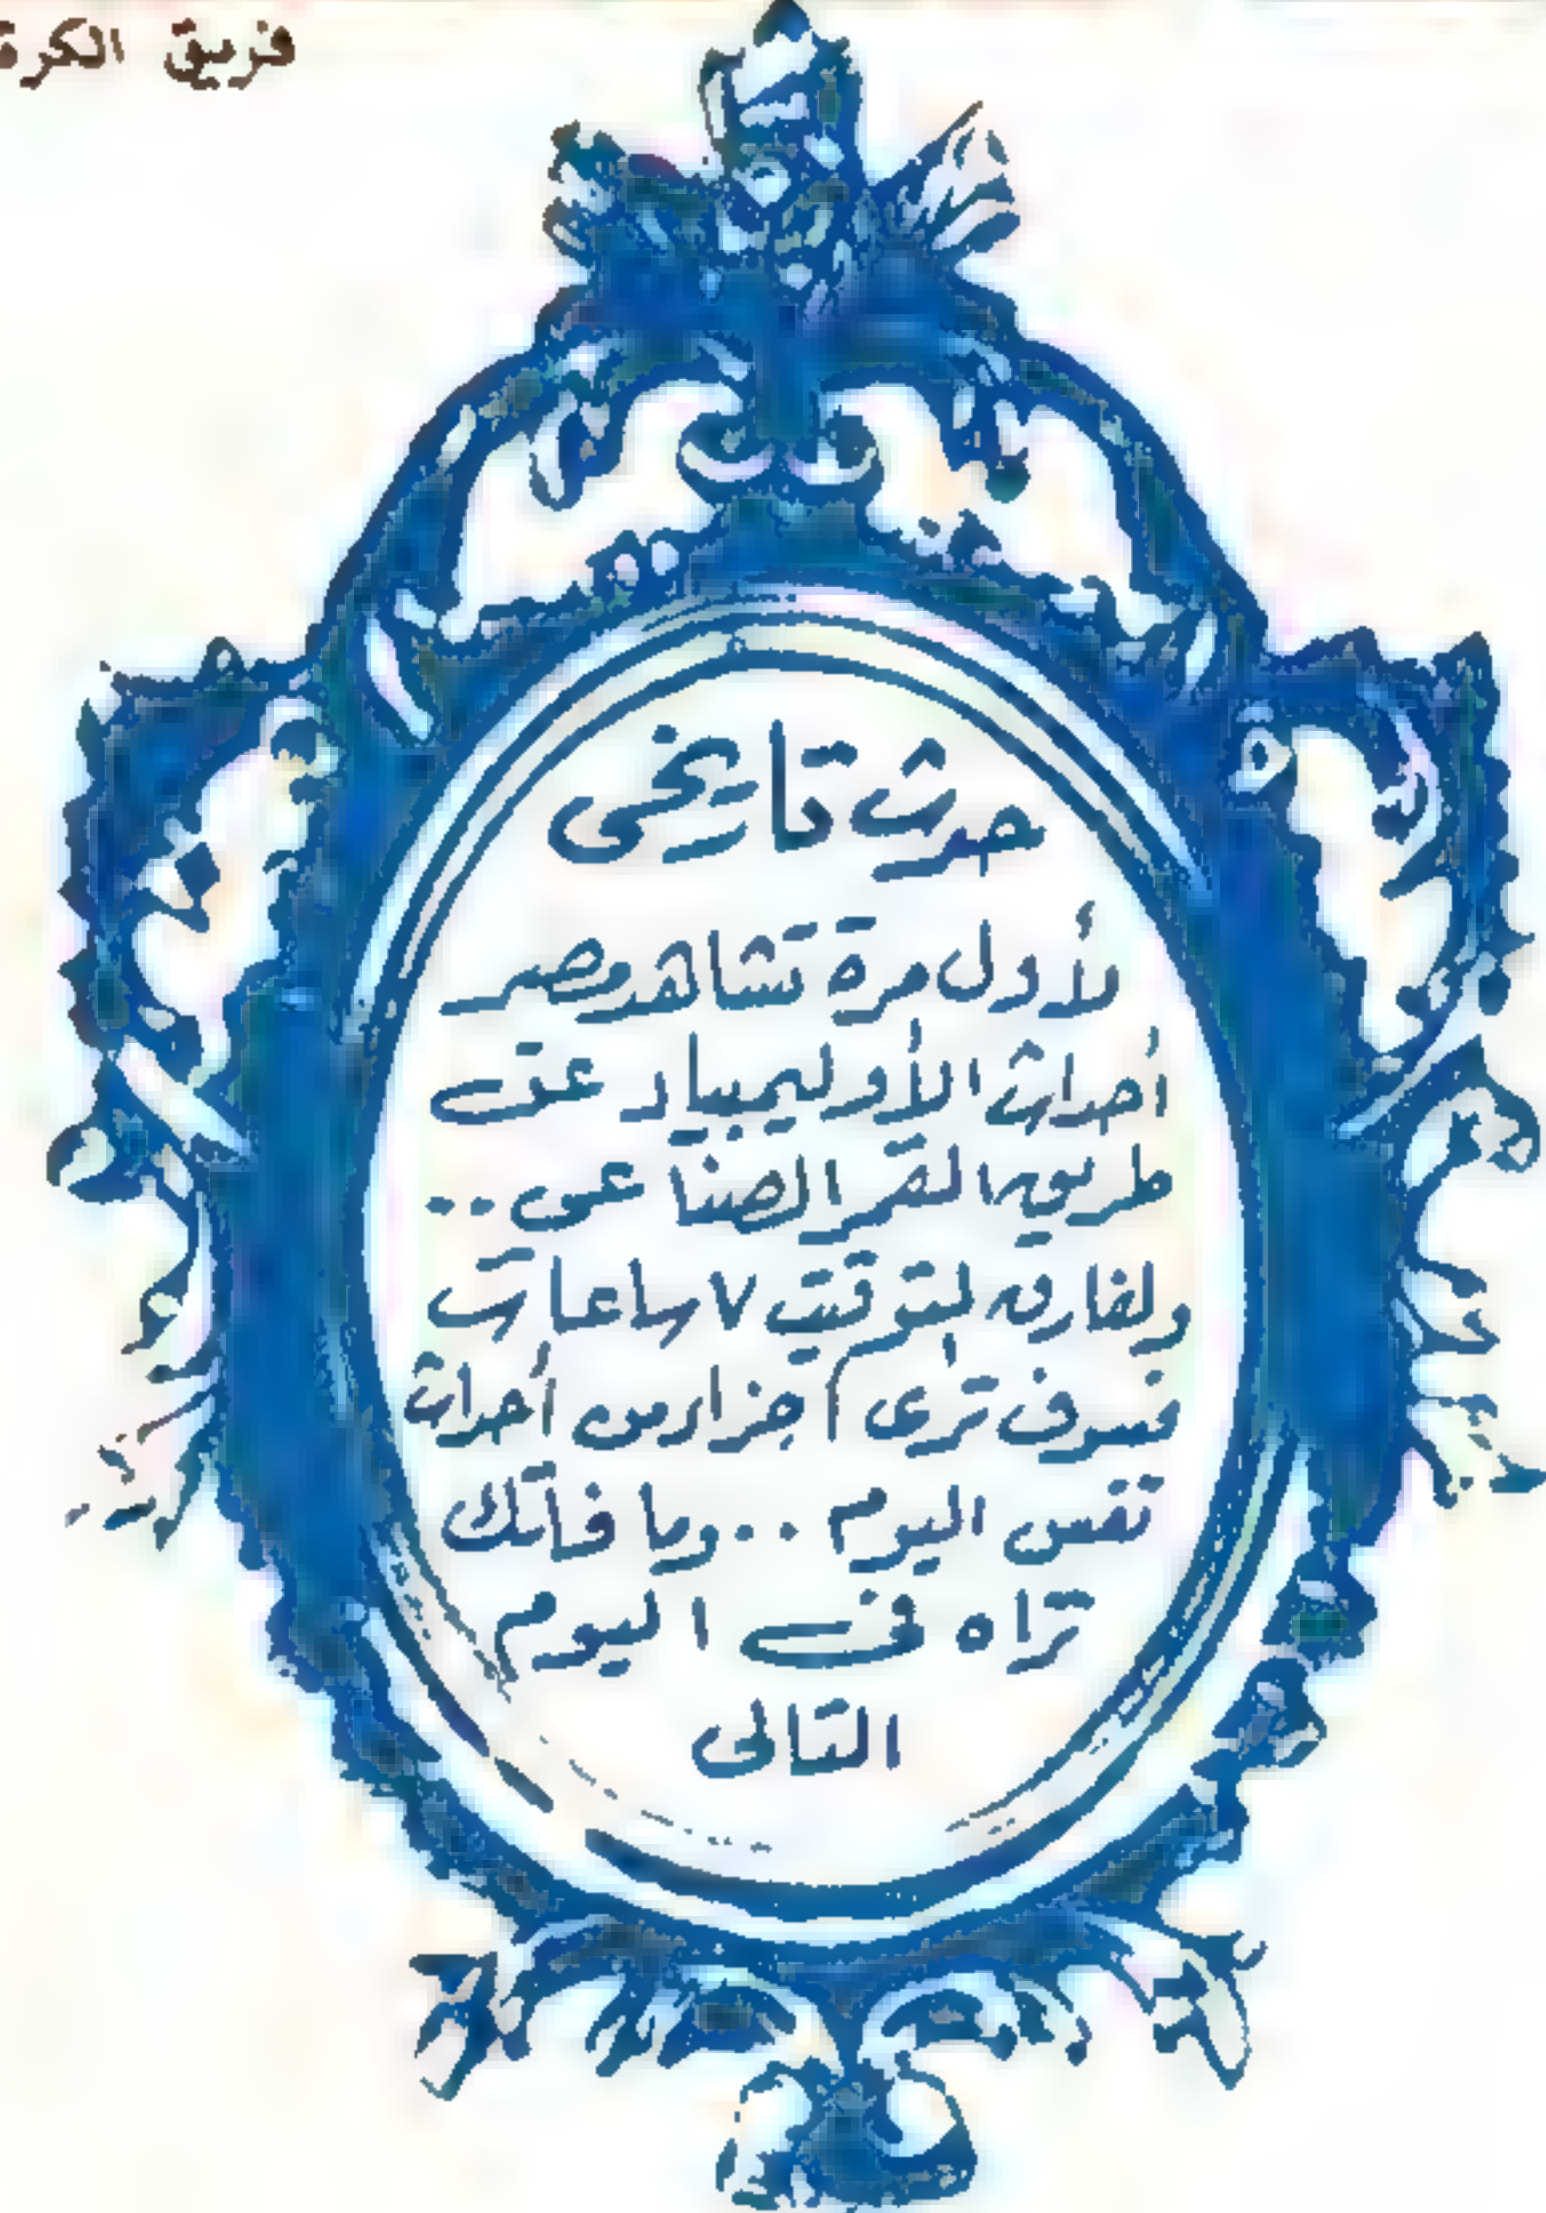 فريق الكرة
حدث تاريخى
لأول مرة تشاهد مصر
أحداث الأوليمبياد عن
طريق القمر الصناعى ..
ولفارق التوقيت ٧ ساعات
فسوف ترى أجزاء من أحداث
نفس اليوم .. وما فاتك
تراه فى اليوم
التالى